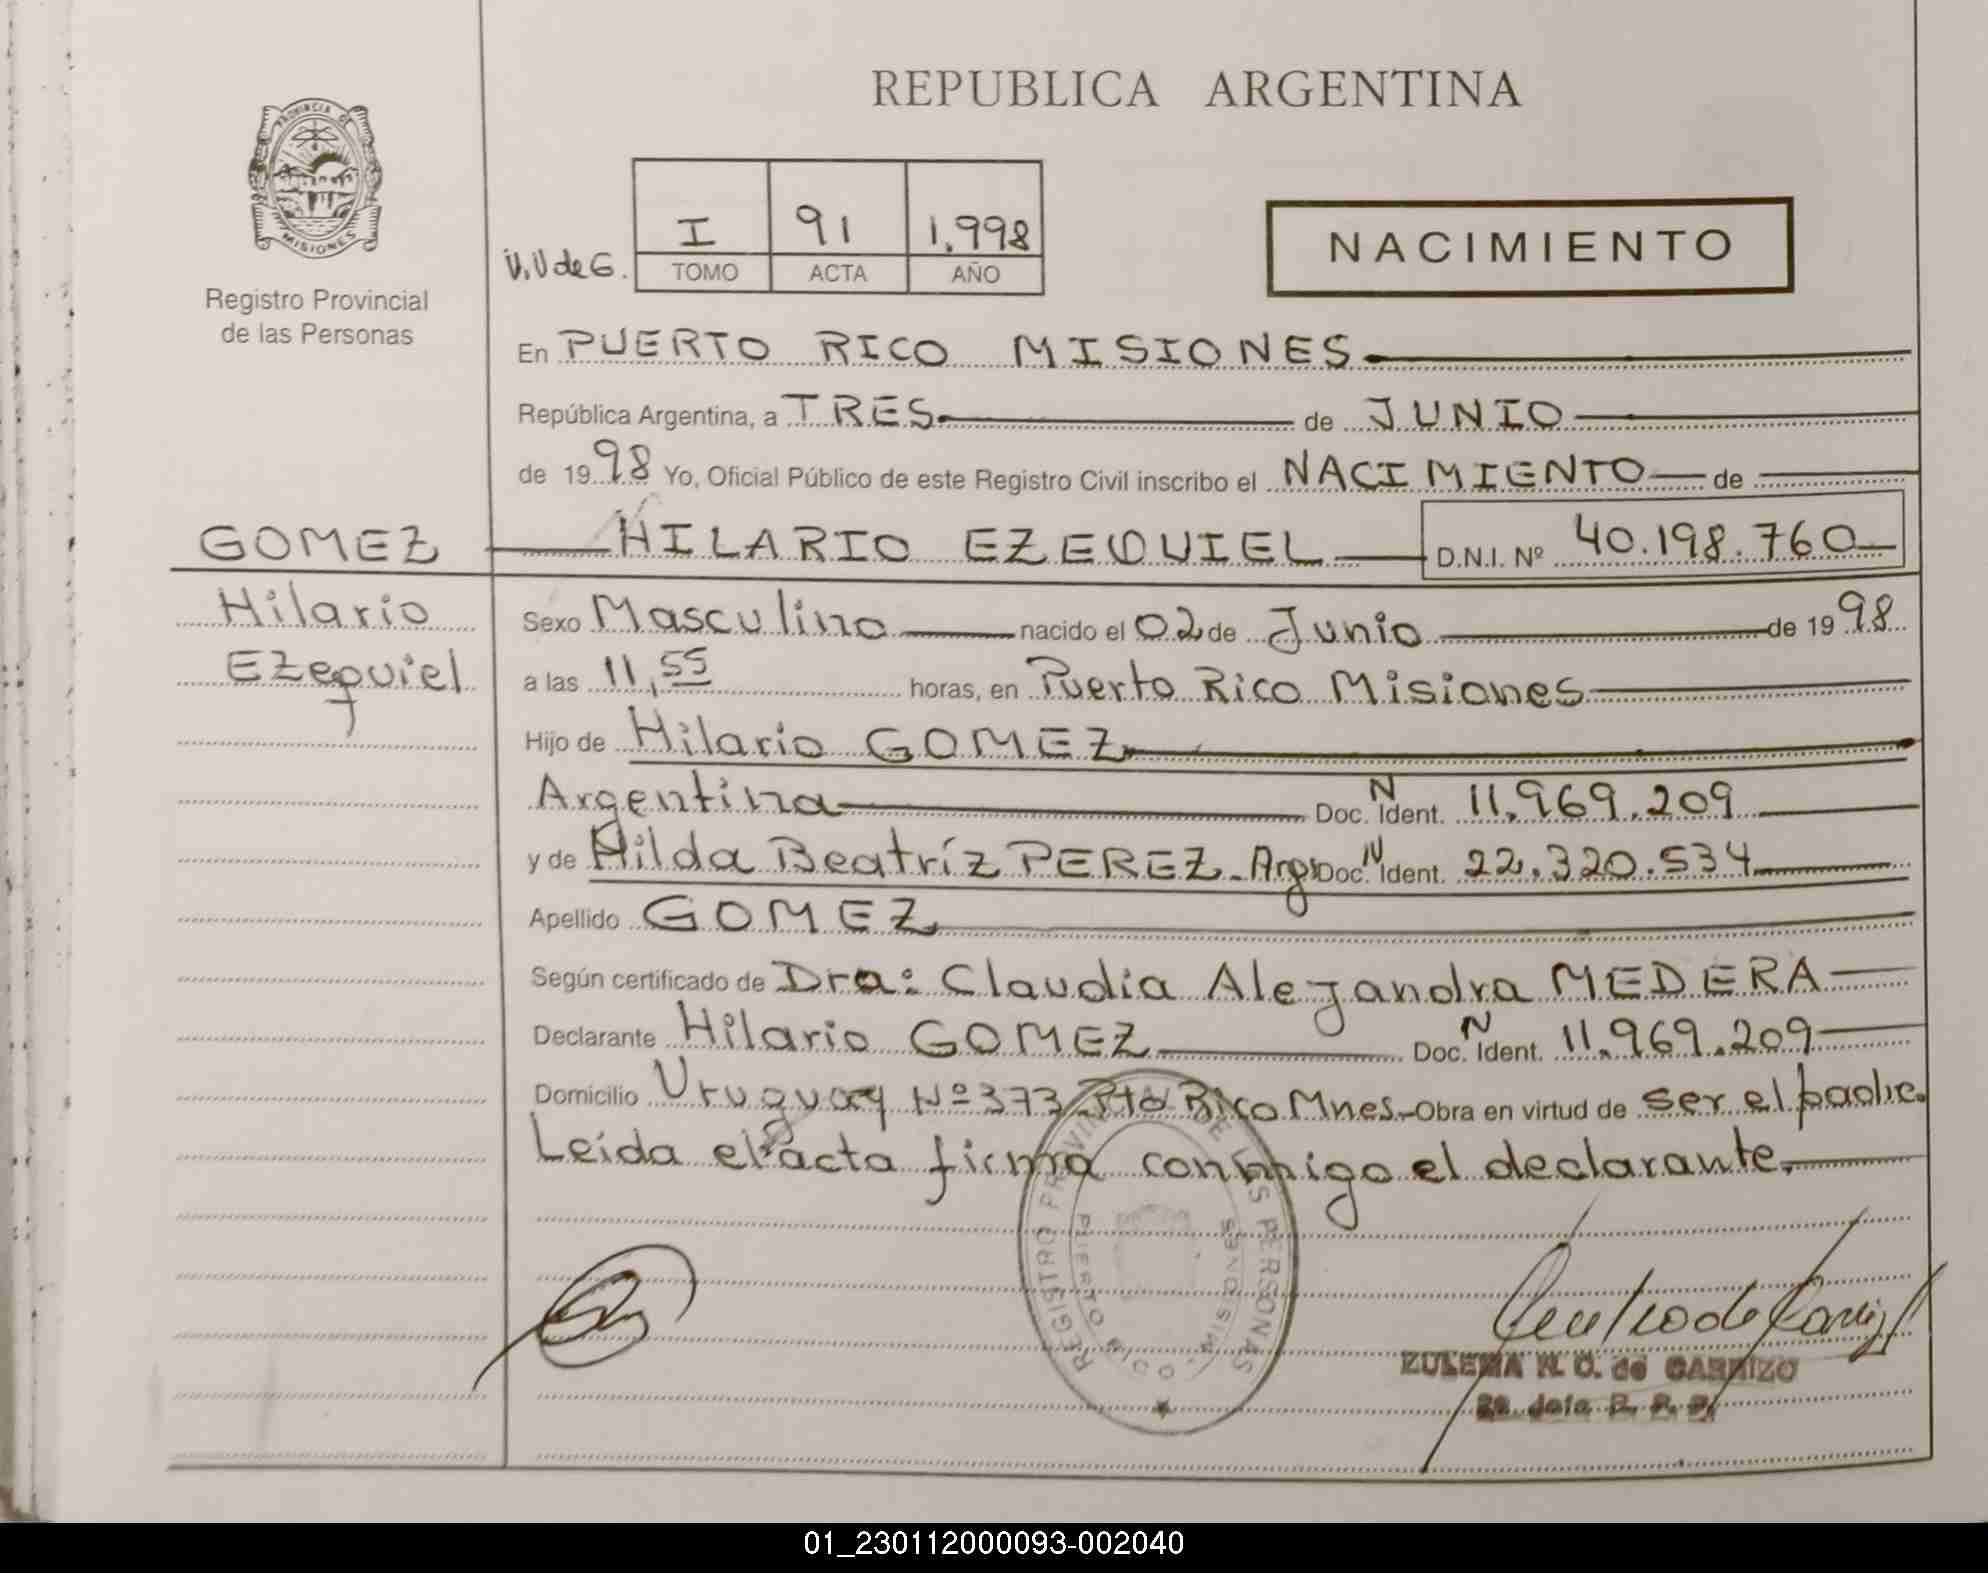 REPUBLICA ARGENTINA
PROVINCIA DE
MISIONES
Registro Provincial
de las Personas
I 91 1.998
TOMO ACTA AÑO
NACIMIENTO
En PUERTO RICO MISIONES
República Argentina, a TRES de JUNIO
de 1998 Yo, Oficial Público de este Registro Civil inscribo el NACIMIENTO de
GOMEZ HILARIO EZEQUIEL D.N.I. Nº 40.198.760
Hilario
Ezequiel
Sexo Masculino nacido el 02 de Junio de 1998
a las 11,55 horas, en Puerto Rico Misiones
Hijo de Hilario GOMEZ
Argentina Doc. N Ident. 11.969.209
y de Hilda Beatríz PEREZ - Arg. Doc. N Ident. 22.320.534
Apellido GOMEZ
Según certificado de Dra: Claudia Alejandra MEDERA
Declarante Hilario GOMEZ Doc. N Ident. 11.969.209
Domicilio Uruguay Nº 373 - Pto Rico Mnes.- Obra en virtud de ser el padre.
Leída el acta firma conmigo el declarante.
REGISTRO PROVINCIAL DE LAS PERSONAS
PUERTO RICO (MISIONES)
ZULEMA N. C. de CARRIZO
01_230112000093-002040